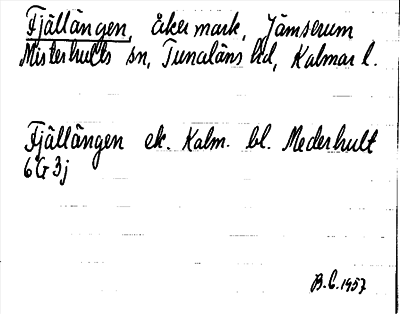 Fjällängen, åkermark, Jämserum
Misterhults sn, Tunaläns hd, Kalmar l.
Fjällängen ek. Kalm. bl. Mederhult
6G3j
B.C. 1957